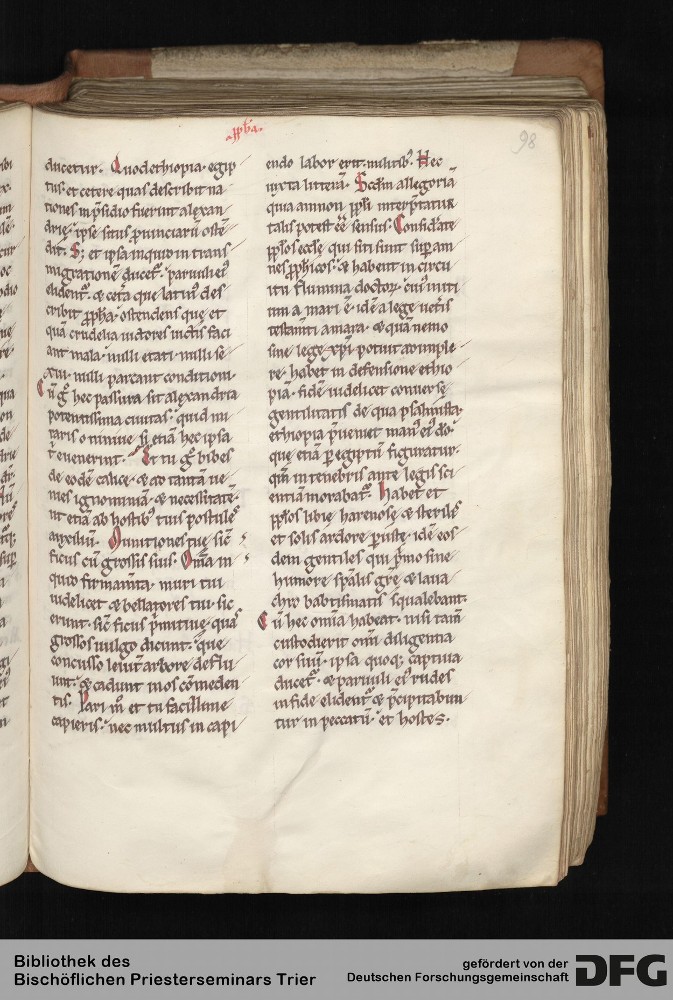 .pph̄a.
98
ducetur. Quod ethiopia. egip
tus. et cetere quas describit na
tiones in p̄sidio fuerint alexan
drie. ipse situs prouinciarū ostē
dit. S; et ipsa inquid in trans
migrationē ducet᷑. paruuli ei᷒
elident᷑. & cet̄a que latin᷒ des
cribit pph̄a. ostendens que et
quā crudelia uictores uictis faci
ant mala. nulli etati. nulli se
xui. nulli parcant conditioni.
Cū gͦ hec passura sit alexandria
potentissima ciuitas. quid mi
raris o niniue si etiā hec ipsa
t̄ euenerint. Et tu gͦ bibes
de eodē calice. & ad tantā ue
nies ignominiā. & necessitatē.
ut etiā ab hostib᷒ tuis postules
auxiliū. Munitiones tue sic̄
ficus cū grossis suis. Om̄ia in
quid firmam̄ta. muri tui
uidelicet & bellatores tui. sic
erunt. sic̄ ficus p̄mitiue. quas
grossos uulgo dicunt. que
concusso leuit̄ arbore deflu
unt. & cadunt in os cōmeden
tis. Pari m̊ et tu facillime
capieris. nec multus in capi
endo labor erit. militib᷒. Hec
iuxta litterā. Scd̄m allegoriā
qua ammon ppl̄i interp̄tatur
talis potest ēē sensus. Considerate
ppl̄os eccl̄e. qui siti sunt sup̄ am
nes pph̄icos. & habent in circu
itu flumina doctor. cui᷒ initi
um a mari ē. idē a lege uet̄is
testam̄ti amara. & quā nemo
sine lege xp̄i potuit adimple
re. habet in defensione ethio
piā. fidē uidelicet conuerse
gentilitatis de qua psalmista.
ethiopia p̄ueniet man᷒ ei᷒ dō.
que etiā p̄ egiptū figuratur.
qm̄ in tenebris ante legis sci
entiā morabat᷑. Habet et
ppl̄os libie harenose & steriles
et solis ardore p̄uste. idē eos
dem gentiles qui p̄mo sine
humore sp̄alis gr̄e & laua
chro babtismatis squalebant.
Cū hec om̄ia habeat. nisi tam̄
custodierit om̄i diligentia
cor suū. ipsa quoq; captiua
ducet᷑. & paruuli ei᷒ rudes
in fide elident᷑. & p̄cipitabun
tur in peccatū. et hostes.
Bibliothek des
Bischöflichen Priesterseminars Trier
gefördert von der
Deutschen Forschungsgemeinschaft
DFG